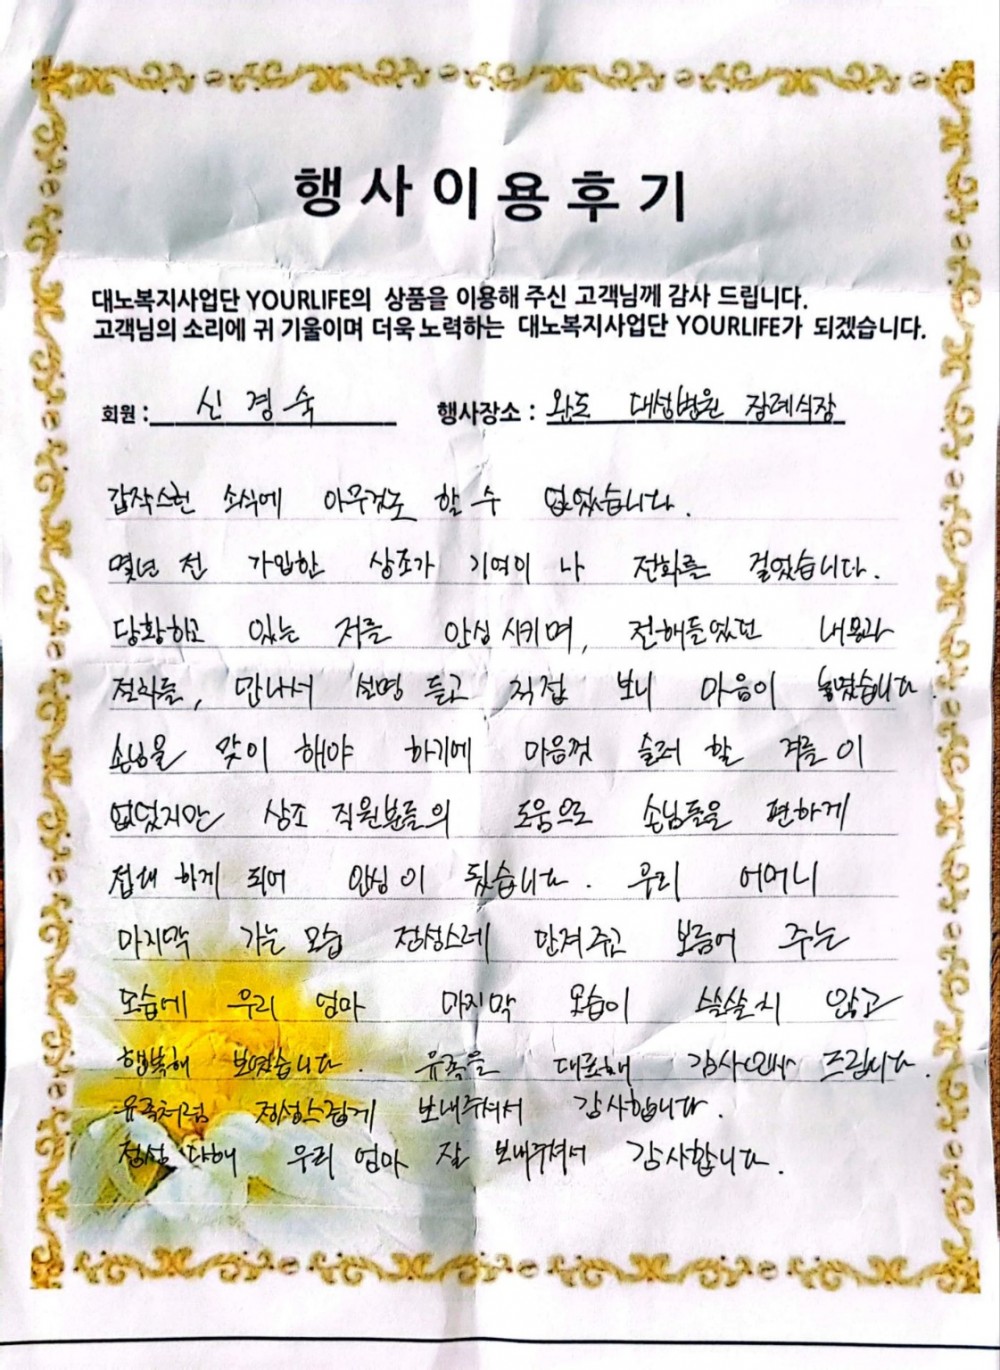 행사이용후기
대노복지사업단 YOURLIFE의 상품을 이용해 주신 고객님께 감사 드립니다.
고객님의 소리에 귀 기울이며 더욱 노력하는 대노복지사업단 YOURLIFE가 되겠습니다.
회원 : 신경숙 행사장소 : 완도 대성병원 장례식장
갑작스런 소식에 아무것도 할 수 없었습니다.
몇년 전 가입한 상조가 기억이 나 전화를 걸었습니다.
당황하고 있는 저를 안심 시키며, 전해들었던 내용과
절차를, 만나서 설명 듣고 직접 보니 마음이 놓였습니다.
손님을 맞이 해야 하기에 마음껏 슬퍼 할 겨를이
없었지만 상조 직원분들의 도움으로 손님들을 편하게
접대 하게 되어 안심이 됐습니다. 우리 어머니
마지막 가는 모습 정성스레 만져주고 보듬어 주는
모습에 우리 엄마 마지막 모습이 쓸쓸치 않고
행복해 보였습니다. 유족을 대표해 감사인사 드립니다.
유족처럼 정성스럽게 보내주셔서 감사합니다.
정성 다해 우리 엄마 잘 보내주셔서 감사합니다.